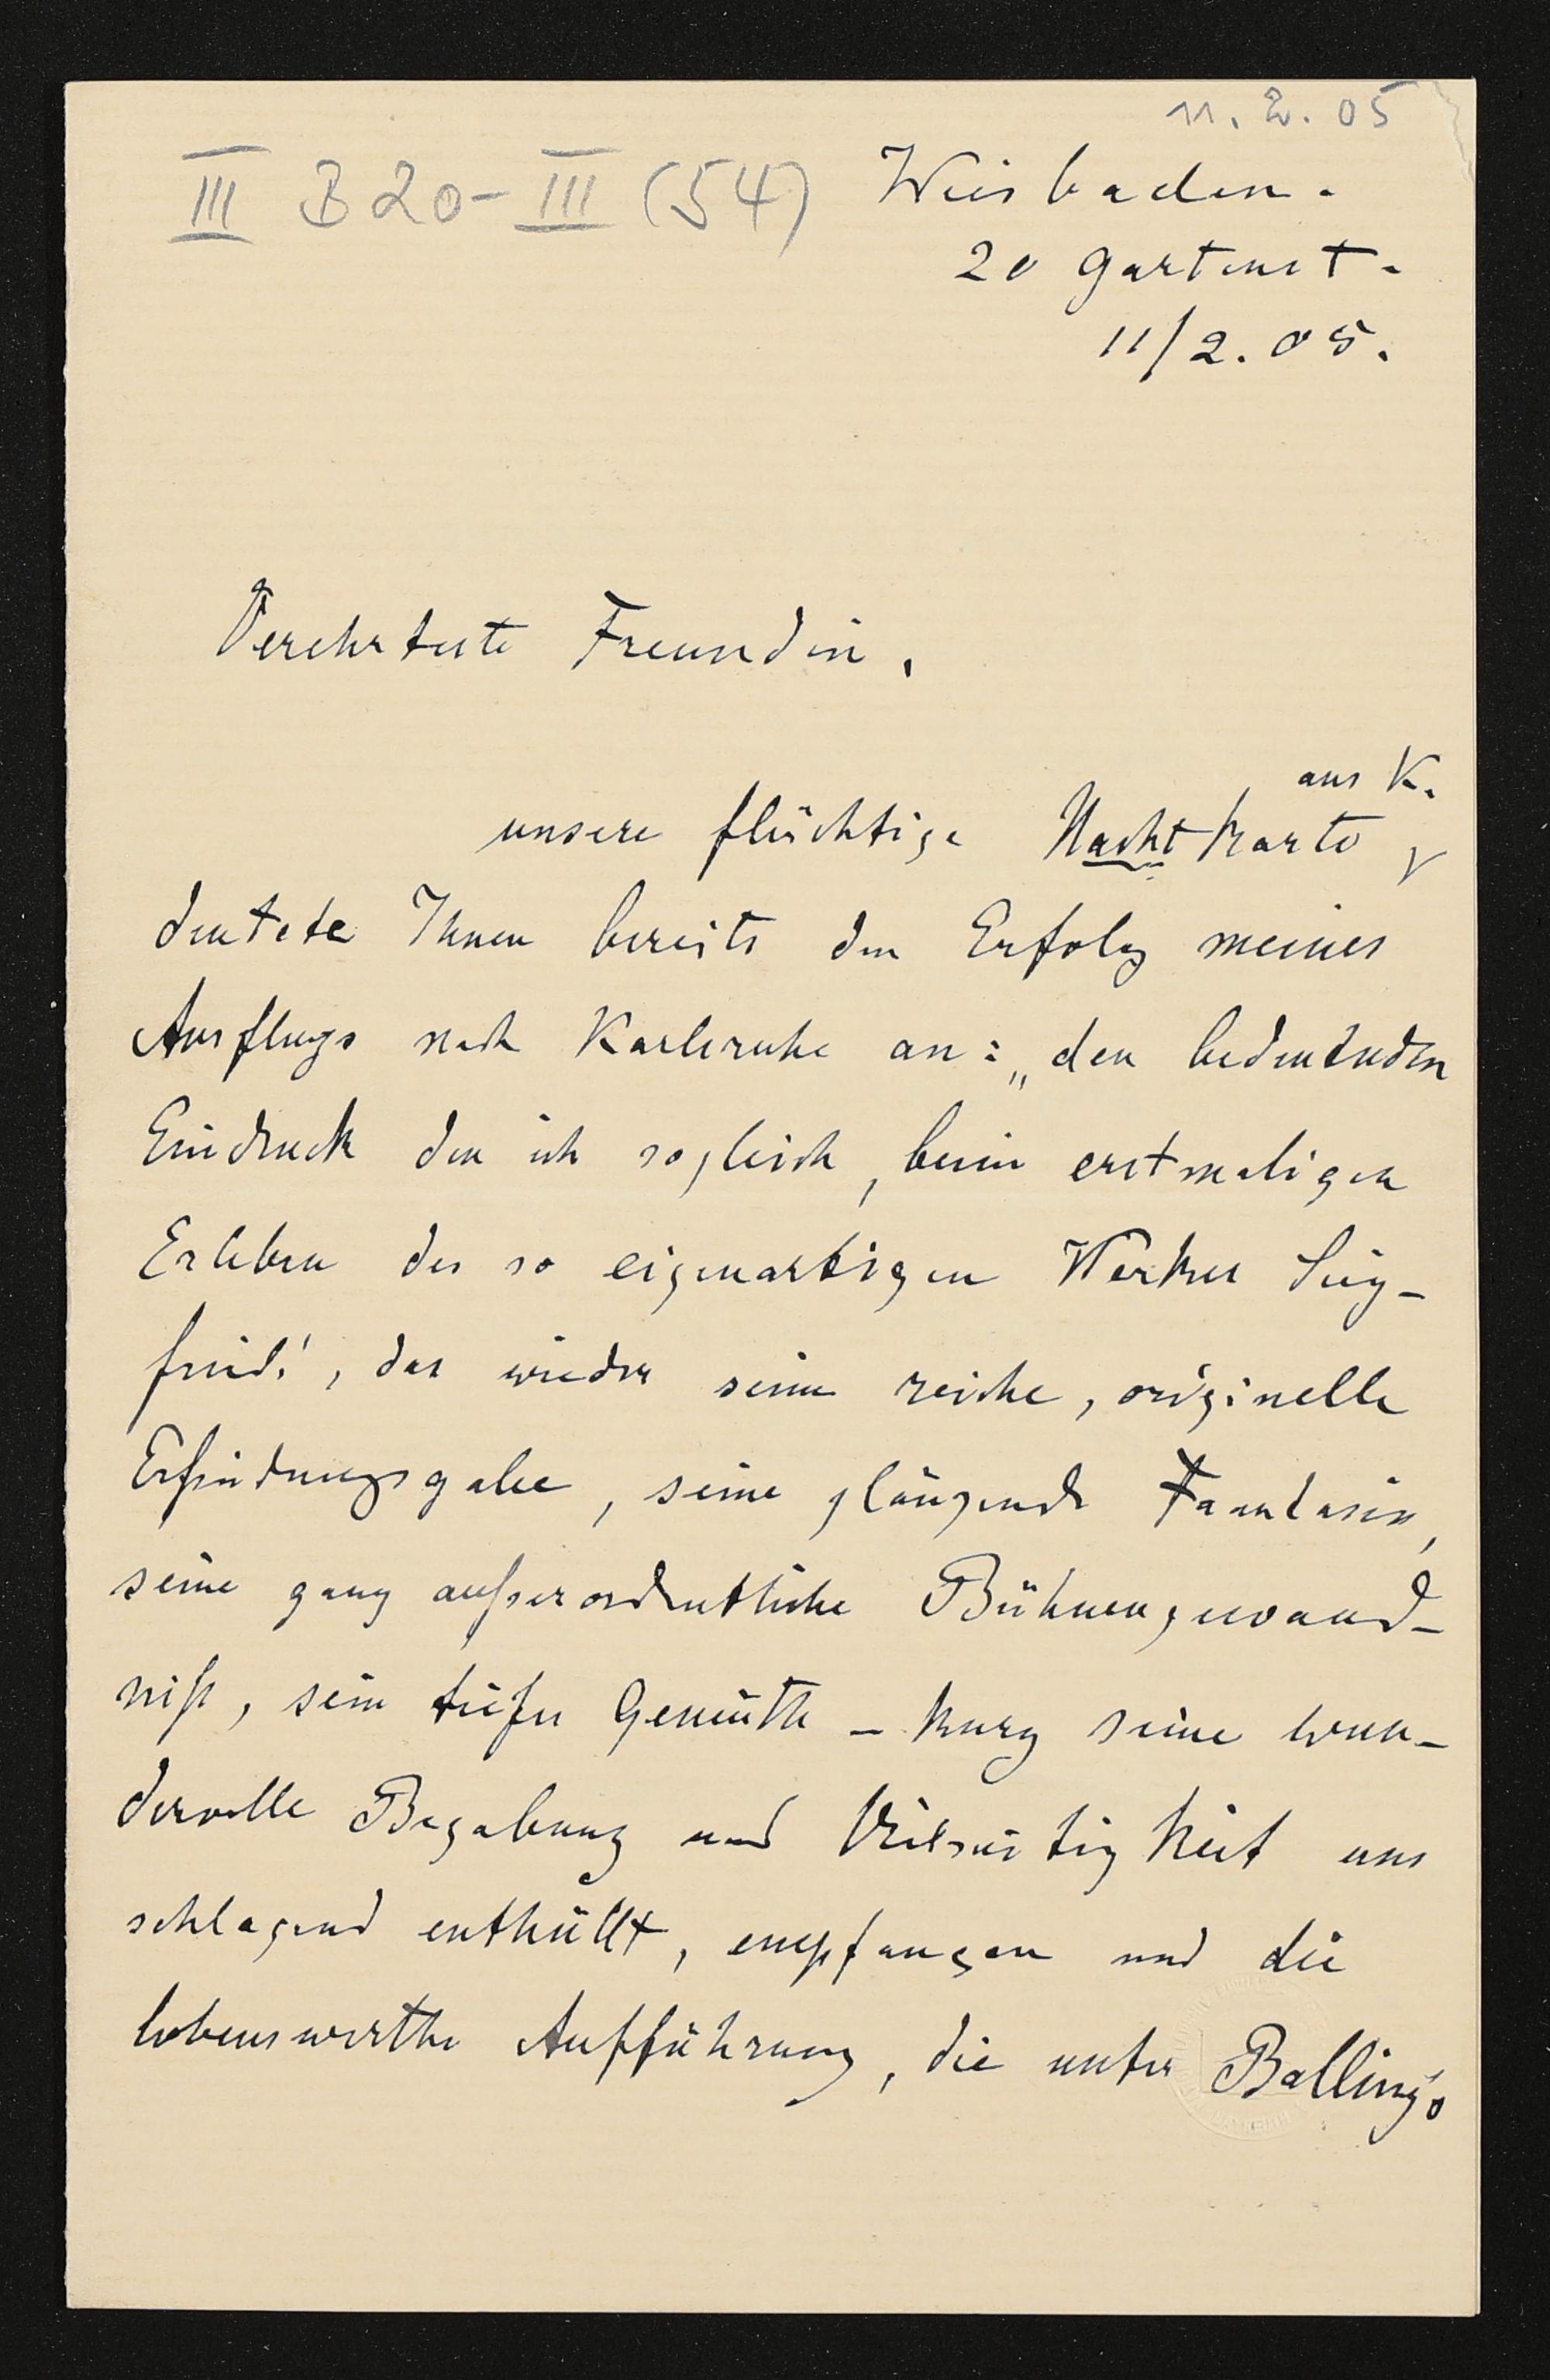 11. 2. 05
III B 20 - III (54)
Wiesbaden.
20 Gartenst.
11/2. 05.
Verehrteste Freundin,
aus K.
unsere flüchtige Nachtkarte
deutete Ihnen bereits den Erfolg meines
Ausflugs nach Karlsruhe an: „den bedeutenden
Eindruck den ich sogleich, beim erstmaligen
Erleben des so eigenartigen Werkes Sieg-
frieds', das wieder seine reiche, originelle
Erfindungsgabe, seine glänzende Fantasie,
seine ganz außerordentliche Bühnengewand-
niß, sein tiefes Gemüth - kurz seine wun-
dervolle Begabung und Vielseitigkeit uns
schlagend enthüllt, empfangen und die
lobenswerthe Aufführung, die unter Balling's